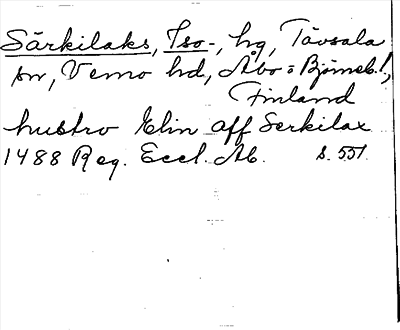 Särkilaks, Iso-, hg, Tövsala
sn, Vemo hd, Åbo o Björneb. l.,
Finland
hustro Elin aff Serkilax
1488 Reg. Eccl. Ab. s. 551